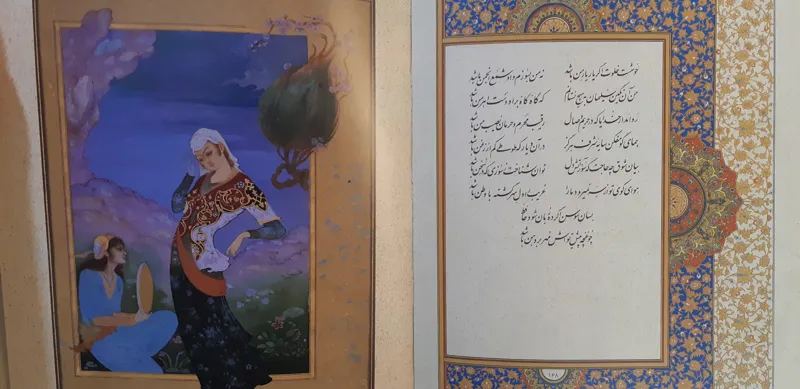 خوشست خلوت اگر یار یار من باشد
نه من بسوزم و او شمع انجمن باشد
من آن نگین سلیمان بهیچ نستانم
که گاه گاه برو دست اهرمن باشد
روا مدار خدایا که در حریم وصال
رقیب محرم و حرمان نصیب من باشد
همای گو مفکن سایه شرف هرگز
در آن دیار که طوطی کم از زغن باشد
بیان شوق چه حاجت که سوز آتش دل
توان شناخت ز سوزی که در سخن باشد
هوای کوی تو از سر نمیرود ما را
غریب را دل سرگشته با وطن باشد
بسان سوسن اگر ده زبان شود حافظ
چو غنچه پیش تواش مهر بر دهن باشد
۱۴۸